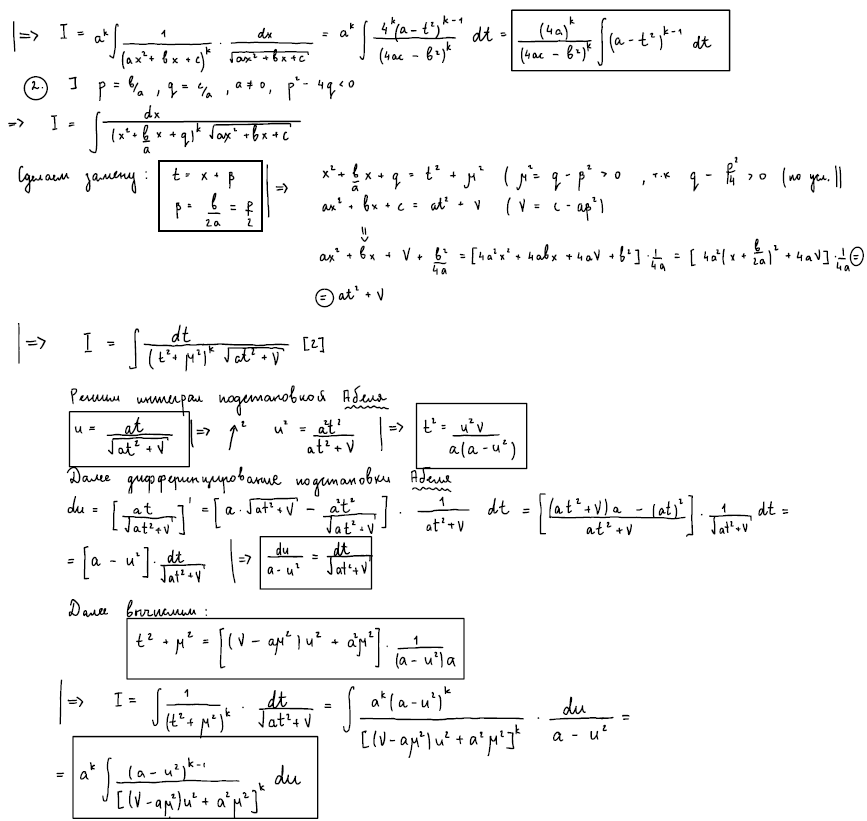 |=> I = a^k ∫ 1/(ax² + bx + c)^k · dx/√(ax² + bx + c) = a^k ∫ 4^k (a - t²)^(k-1)/(4ac - b²)^k dt = (4a)^k/(4ac - b²)^k ∫ (a - t²)^(k-1) dt
2. ] p = b/a , q = c/a , a ≠ 0, p² - 4q < 0
=> I = ∫ dx/((x² + b/a x + q)^k √(ax² + bx + c))
Сделаем замену: t = x + β |=> x² + b/a x + q = t² + μ² ( μ² = q - β² > 0 , т.к q - p²/4 > 0 (по усл.))
β = b/2a = p/2 ax² + bx + c = at² + V ( V = c - aβ²)
ax² + bx + V + b²/4a = [4a²x² + 4abx + 4aV + b²] · 1/4a = [ 4a²(x + b/2a)² + 4aV] · 1/4a =
= at² + V
|=> I = ∫ dt/((t² + μ²)^k √(at² + V)) [2]
Решим интеграл подстановкой Абеля
u = at/√(at² + V) |=> ↑² u² = a²t²/(at² + V) |=> t² = u²V/(a(a - u²))
Далее дифференцирование подстановки Абеля
du = [at/√(at² + V)]' = [a · √(at² + V) - a²t²/√(at² + V)] · 1/(at² + V) dt = [((at² + V)a - (at)²)/(at² + V)] · 1/√(at² + V) dt =
= [a - u²] · dt/√(at² + V) |=> du/(a - u²) = dt/√(at² + V)
Далее вычислим:
t² + μ² = [(V - aμ²)u² + a²μ²] · 1/((a - u²)a)
|=> I = ∫ 1/(t² + μ²)^k · dt/√(at² + V) = ∫ a^k (a - u²)^k/[(V - aμ²)u² + a²μ²]^k · du/(a - u²) =
= a^k ∫ (a - u²)^(k-1)/[(V - aμ²)u² + a²μ²]^k du